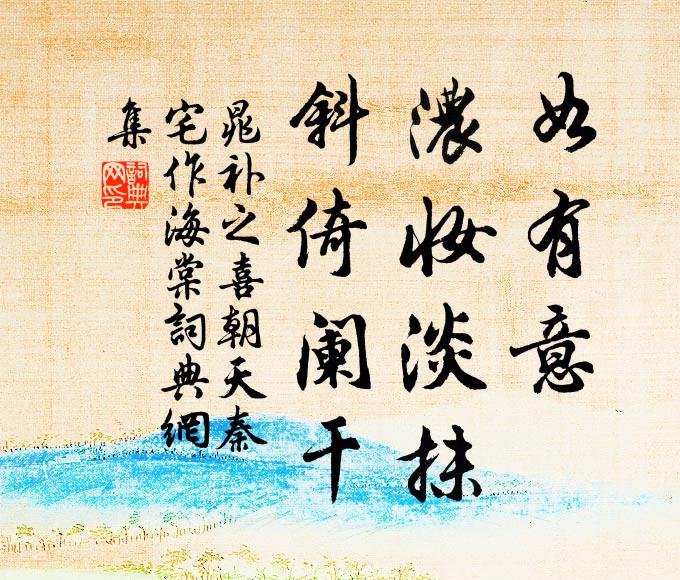 如有意
濃妆淡抹
斜倚阑干
晁补之喜朝天秦
宅作海棠詞典網
集
詞典网印